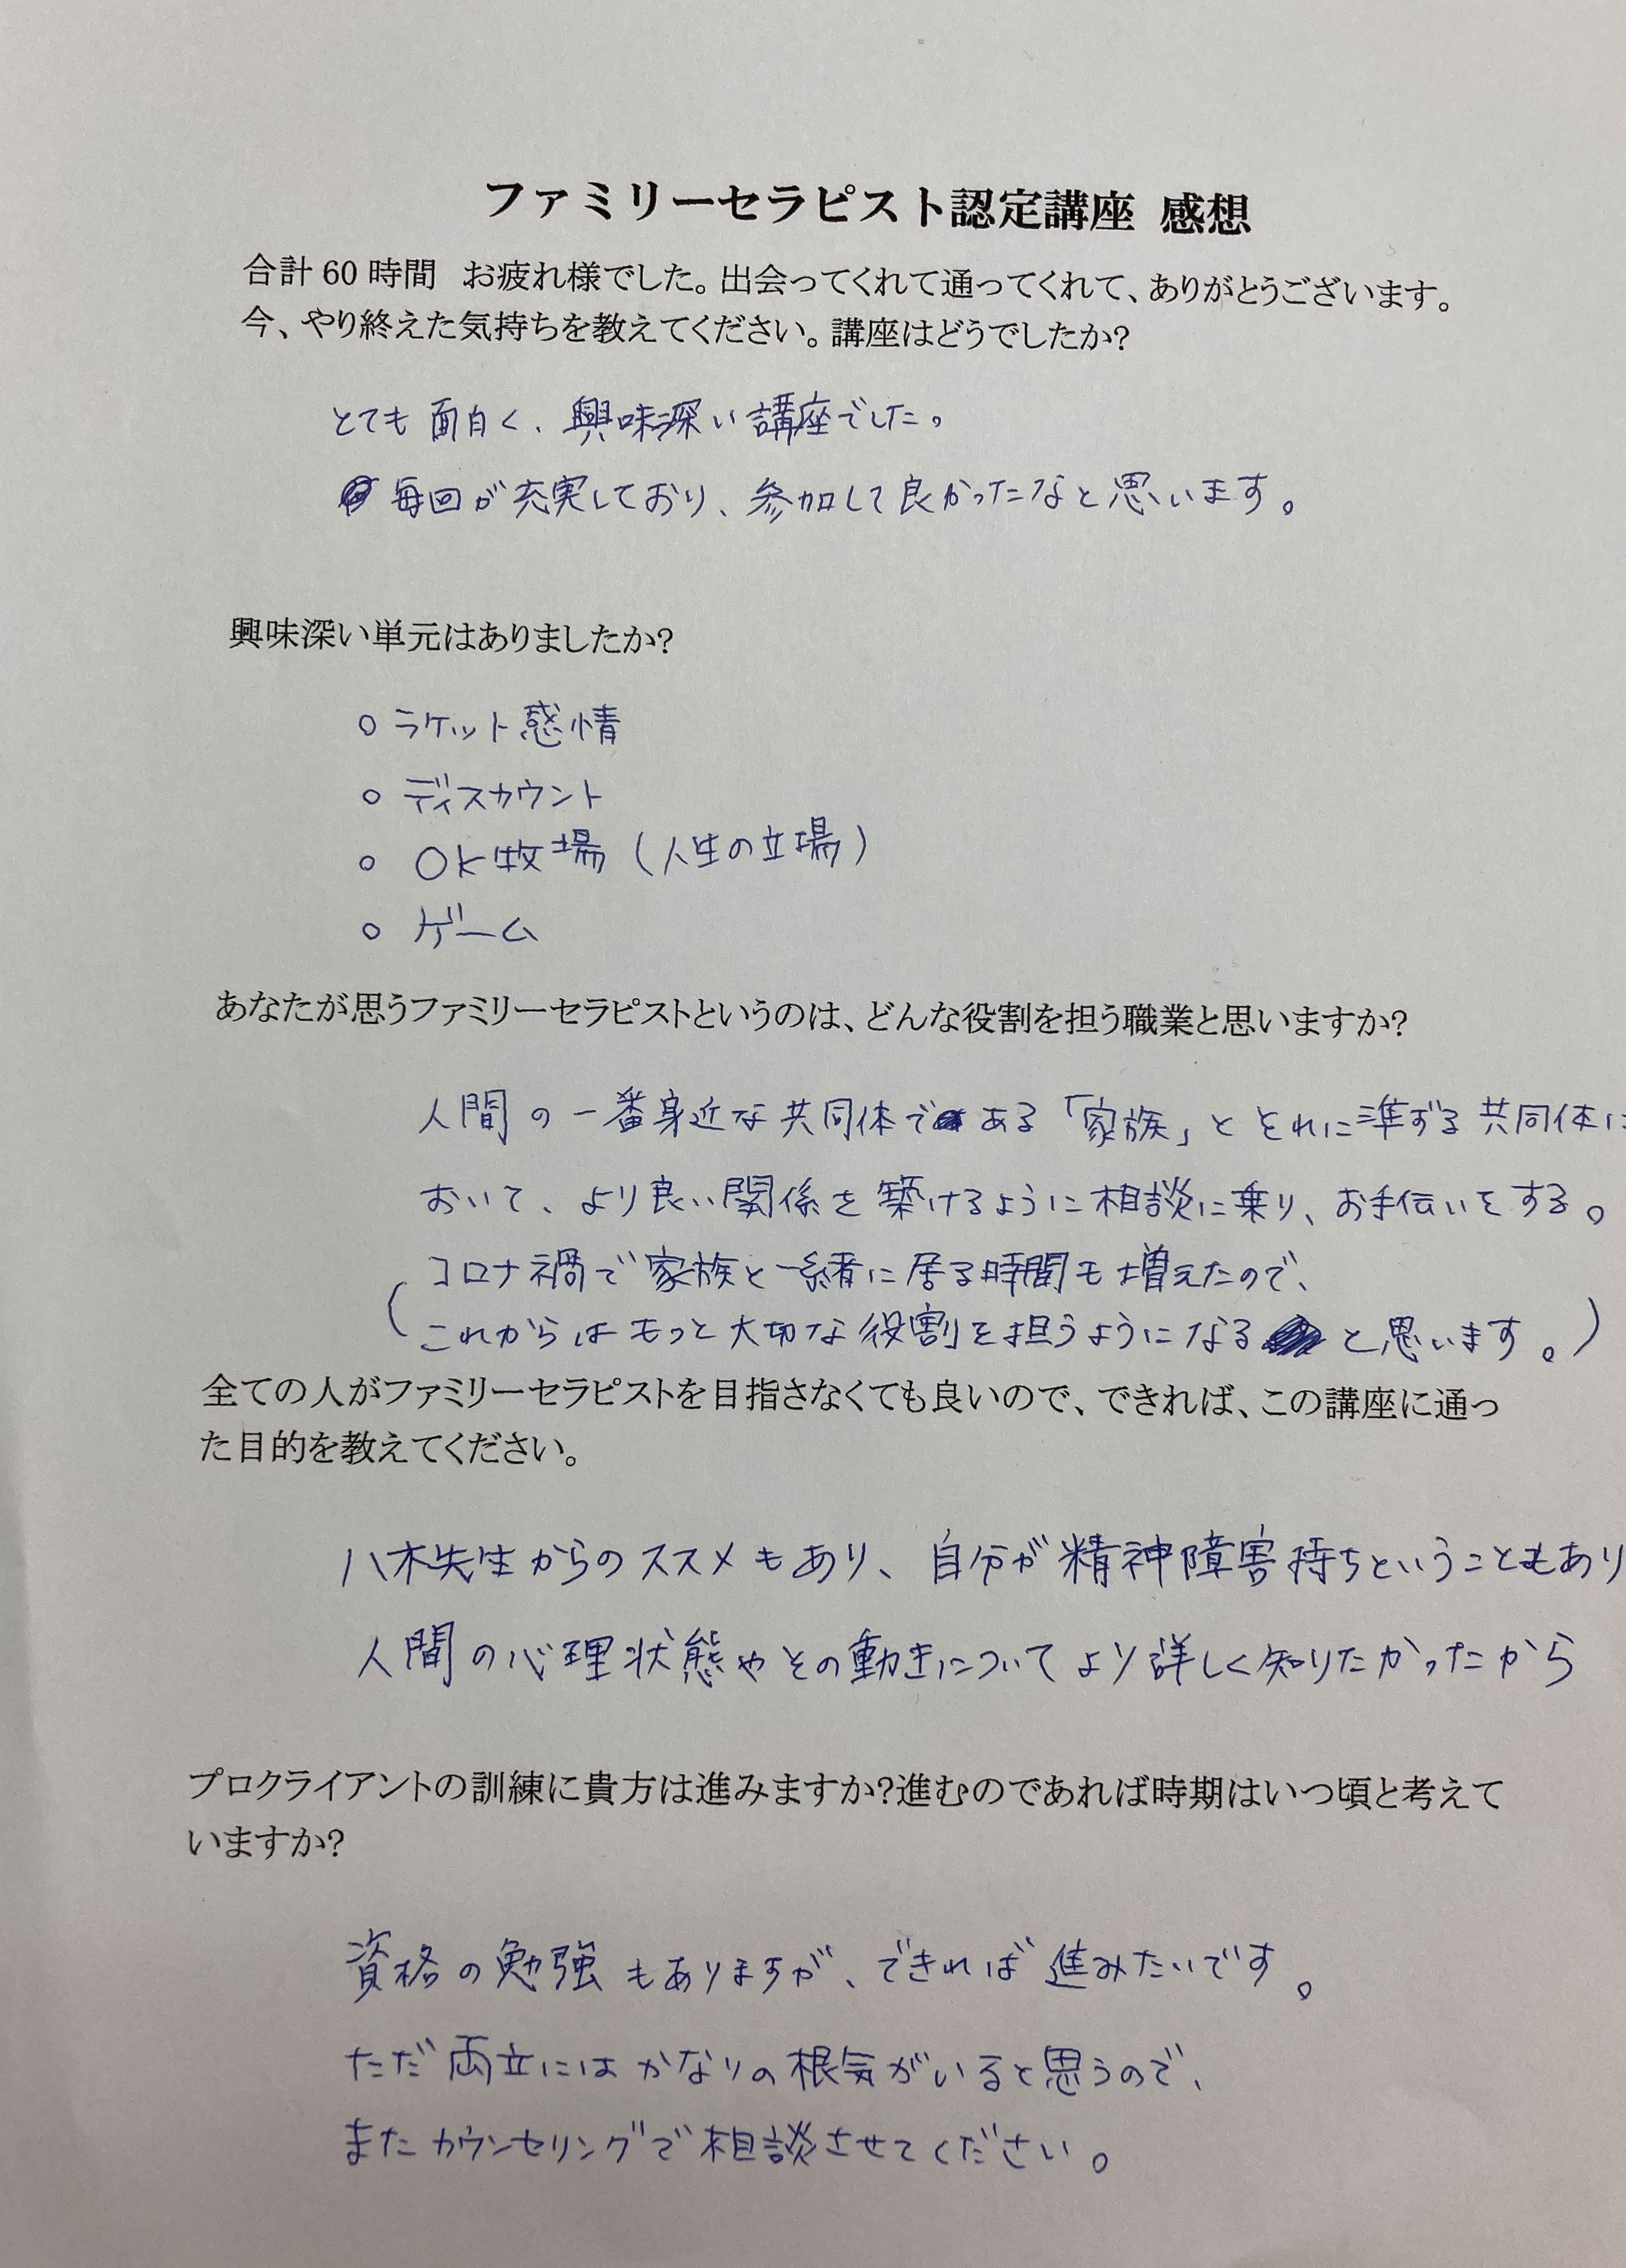 ファミリーセラピスト認定講座 感想
合計 60 時間 お疲れ様でした。出会ってくれて通ってくれて、ありがとうございます。
今、やり終えた気持ちを教えてください。講座はどうでしたか?
とても面白く、興味深い講座でした。
毎回が充実しており、参加して良かったなと思います。
興味深い単元はありましたか?
○ ラケット感情
○ ディスカウント
○ OK牧場(人生の立場)
○ ゲーム
あなたが思うファミリーセラピストというのは、どんな役割を担う職業と思いますか?
人間の一番身近な共同体である「家族」とそれに準ずる共同体に
おいて、より良い関係を築けるように相談に乗り、お手伝いをする。
(コロナ禍で家族と一緒に居る時間も増えたので、
これからはもっと大切な役割を担うようになると思います。)
全ての人がファミリーセラピストを目指さなくても良いので、できれば、この講座に通っ
た目的を教えてください。
八木先生からのススメもあり、自分が精神障害持ちということもあり
人間の心理状態やその動きについてより詳しく知りたかったから
プロクライアントの訓練に貴方は進みますか?進むのであれば時期はいつ頃と考えて
いますか?
資格の勉強もありますが、できれば進みたいです。
ただ両立にはかなりの根気がいると思うので、
またカウンセリングで相談させてください。